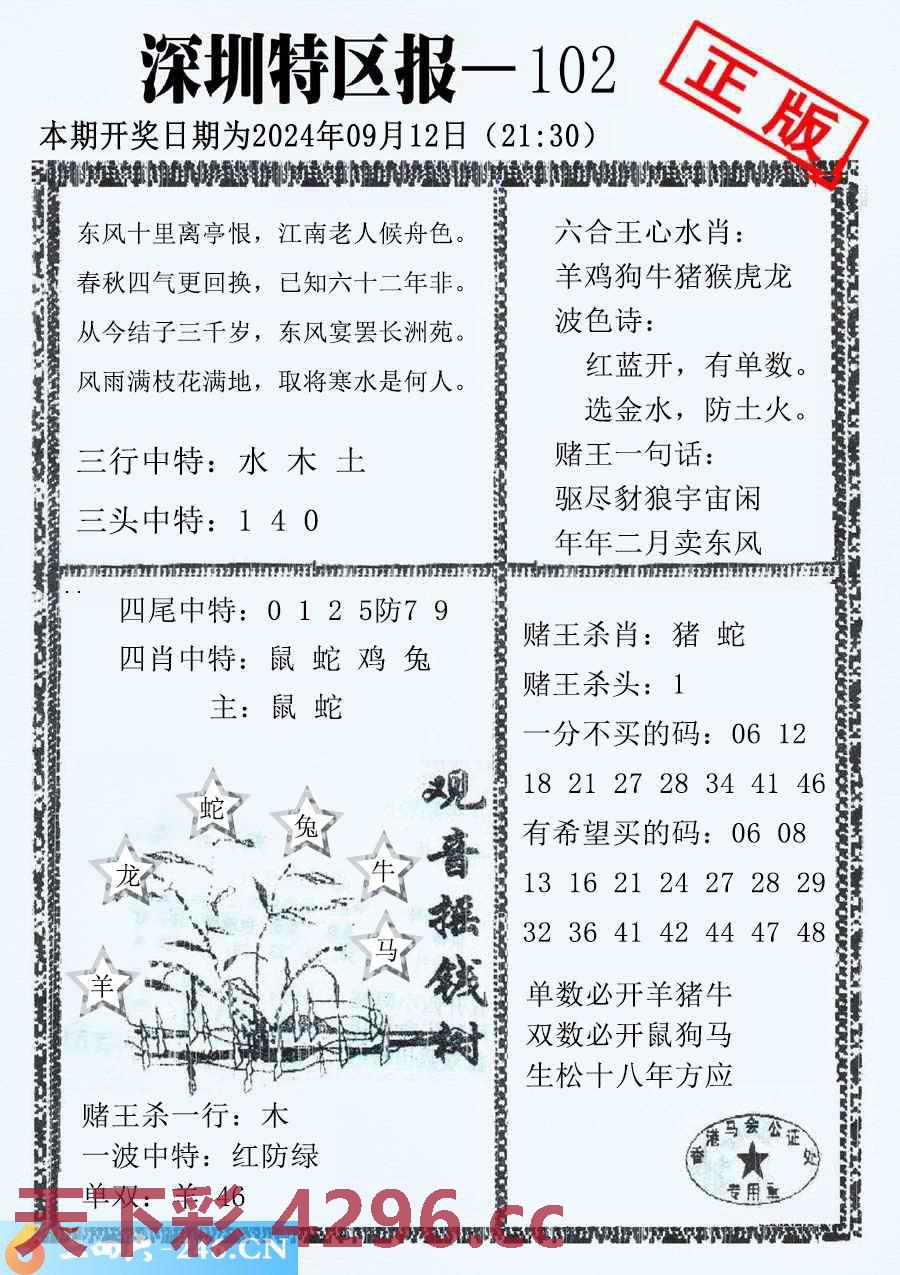 深圳特区报—102
正版
本期开奖日期为2024年09月12日（21:30）
东风十里离亭恨，江南老人候舟色。
春秋四气更回换，已知六十二年非。
从今结子三千岁，东风宴罢长洲苑。
风雨满枝花满地，取将寒水是何人。
三行中特：水 木 土
三头中特：1 4 0
六合王心水肖：
羊鸡狗牛猪猴虎龙
波色诗：
红蓝开，有单数。
选金水，防土火。
赌王一句话：
驱尽豺狼宇宙闲
年年二月卖东风
四尾中特：0 1 2 5防7 9
四肖中特：鼠 蛇 鸡 兔
主：鼠 蛇
蛇
兔
龙
牛
马
羊
观音摇钱树
赌王杀一行：木
一波中特：红防绿
单双：羊 46
赌王杀肖：猪 蛇
赌王杀头：1
一分不买的码：06 12
18 21 27 28 34 41 46
有希望买的码：06 08
13 16 21 24 27 28 29
32 36 41 42 44 47 48
单数必开羊猪牛
双数必开鼠狗马
生松十八年方应
香港马会公证处
专用章
天下彩 4296.cc
-246.CN